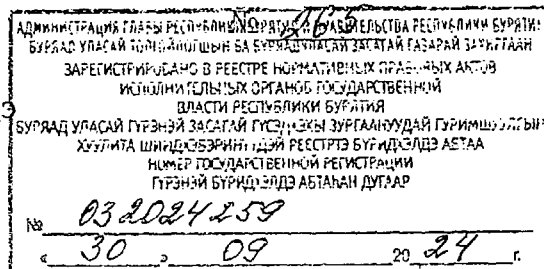 № 265
АДМИНИСТРАЦИЯ ГЛАВЫ РЕСПУБЛИКИ БУРЯТИЯ И ПРАВИТЕЛЬСТВА РЕСПУБЛИКИ БУРЯТИЯ
БУРЯАД УЛАСАЙ ТОЛГОЙЛОГШЫН БА БУРЯАД УЛАСАЙ ЗАСАГАЙ ГАЗАРАЙ ЗАХИРГААН
ЗАРЕГИСТРИРОВАНО В РЕЕСТРЕ НОРМАТИВНЫХ ПРАВОВЫХ АКТОВ
ИСПОЛНИТЕЛЬНЫХ ОРГАНОВ ГОСУДАРСТВЕННОЙ
ВЛАСТИ РЕСПУБЛИКИ БУРЯТИЯ
БУРЯАД УЛАСАЙ ГҮРЭНЭЙ ЗАСАГАЙ ЗУРГААНУУДАЙ
ХУУЛИТА РЕЕСТРТЭ БҮРИДХЭЛДЭ АБТАА
НОМЕР ГОСУДАРСТВЕННОЙ РЕГИСТРАЦИИ
ГҮРЭНЭЙ БҮРИДХЭЛДЭ АБТАҺАН ДУГААР
№ 032024259
« 30 » 09 20 24 г.